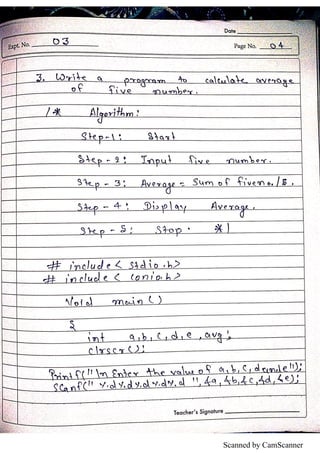 Date
Expt. No. 03
Page No. 04
3. Write a program to calculate average
of five number.
/* Algorithm:
Step-1: Start
Step-2: Input five number.
Step-3: Average = Sum of fiveno./5.
Step-4: Display Average.
Step-5: Stop. */
# include < stdio.h>
# include < conio.h>
Void main ( )
{
int a, b, c, d, e, avg;
clrscr ();
Printf (" \n Enter the value of a, b, c, d and e ");
Scanf (" %d %d %d %d %d ", &a, &b, &c, &d, &e);
Teacher's Signature
Scanned by CamScanner